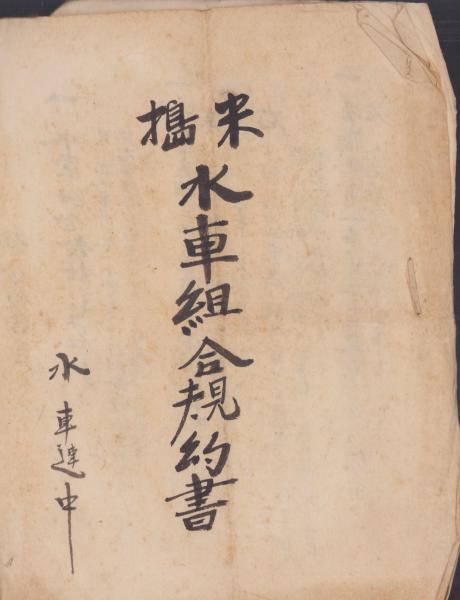 米搗
水車組合規約書
水車連中